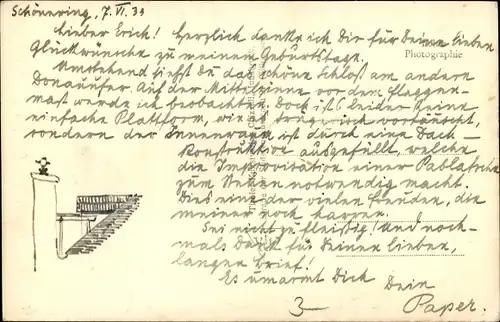 Schönering, 7. VI. 33
Lieber Erich! Herzlich danke ich Dir für Deine lieben
Glückwünsche zu meinem Geburtstage.
Photographie
Umstehend siehst Du das schöne Schloß am andern
Donauufer. Auf der Mittelzinne vor dem Flaggen-
mast werde ich beobachten. Doch ists leider keine
einfache Plattform, wie es trügerisch vortäuscht,
sondern der Innenraum ist durch eine Dach-
konstruktion ausgefüllt, welche
die Improvisation einer
zum notwendig macht.
Dies eine der vielen Freuden, die
meiner noch harren.
Sei nicht zu fleißig! Und noch-
mals Dank für Deinen lieben,
langen Brief!
Es umarmt Dich Dein
Paper.
3